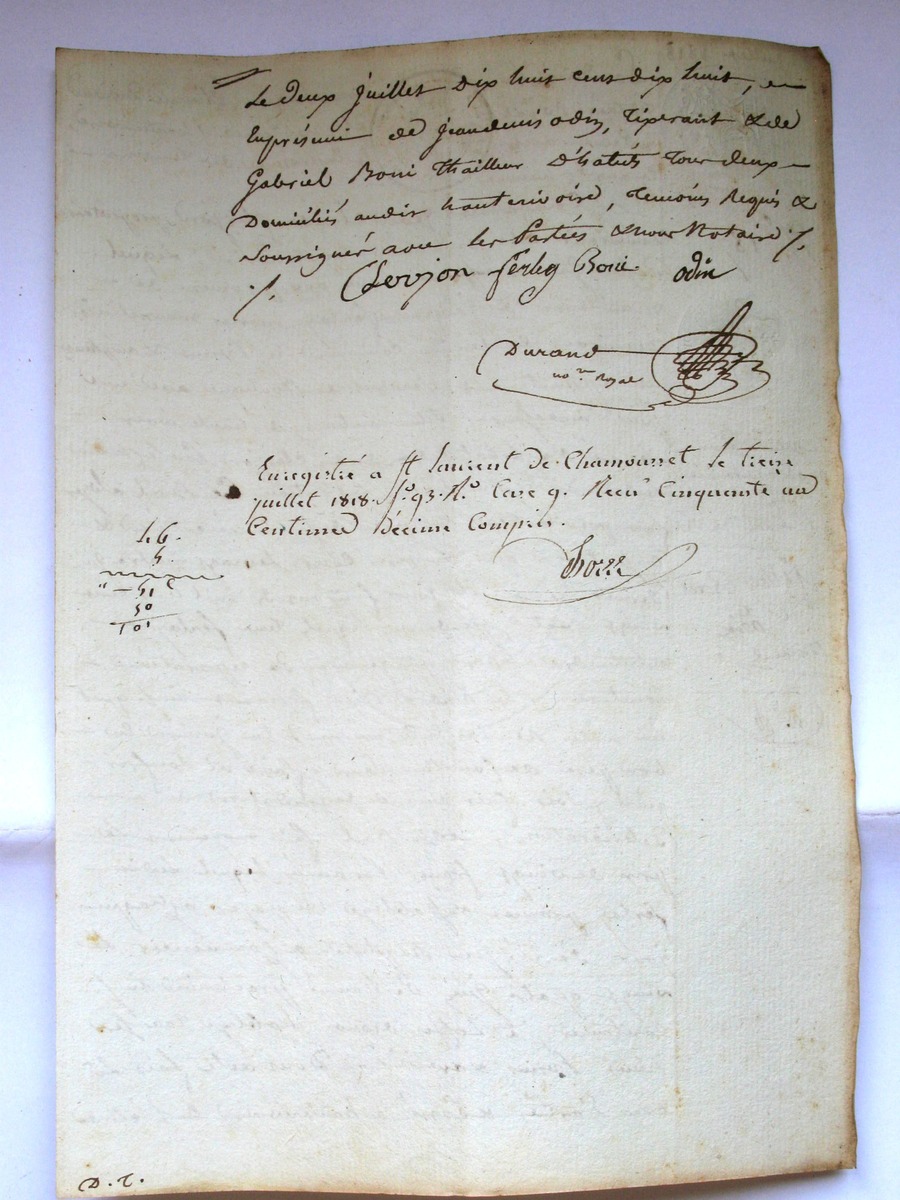 Le deux juillet dix huit cent dix huit, en
En présence de jean denis odin, Tiperant & de
Gabriel Boni Thailleur D'habits Tous deux
Domiciliés audit hauterivoire, Temoins Requis &
Soussignés avec les Parties & nous Notaire ٪.
٪. Clovjon ferley Boni odin
Durand
no.re Royal
Enregistré a St Laurent de Chamousset le treize
juillet 1818. fo. 93. Ro Case 9. Recu Cinquante un
Centimes Décime Compris.
46.
5.
" — 51 c
50
101
D. T.